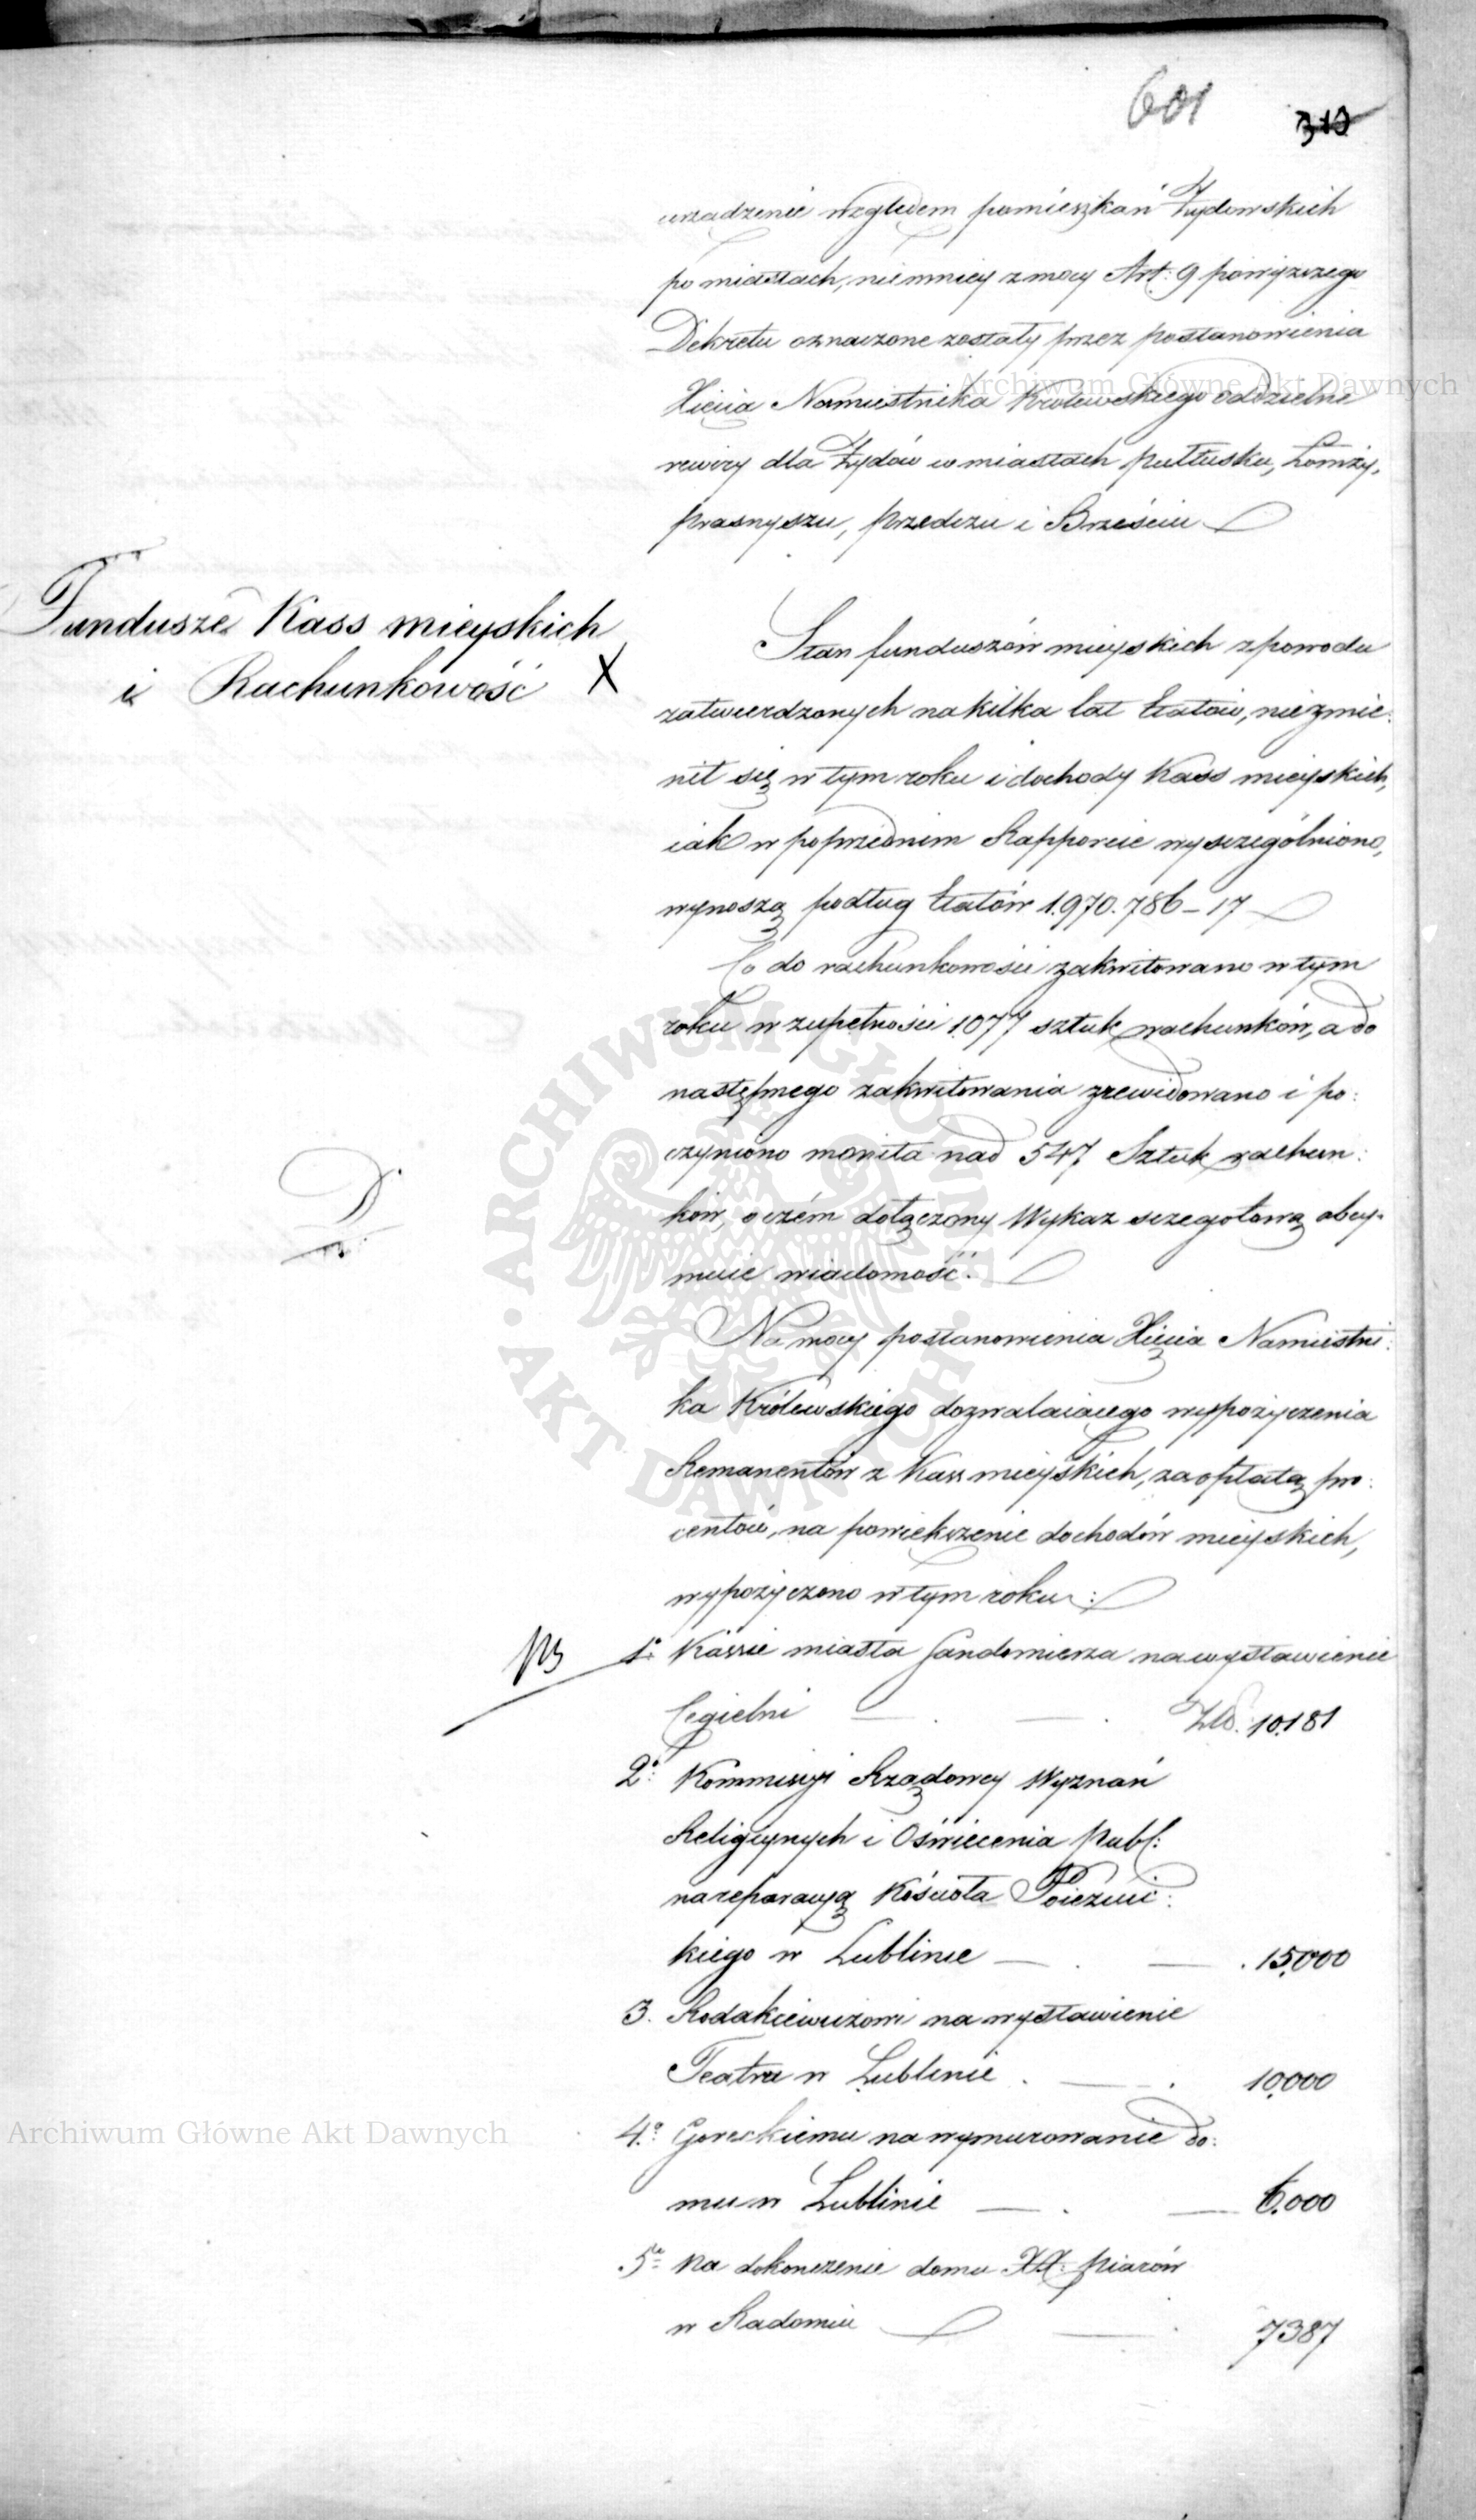 601
319
urządzenie względem pomieszkań Żydowskich
po miastach, niemniey z mocy Art: 9 powyższego
Dekretu oznaczone zostały przez postanowienia
Archiwum Główne Akt Dawnych
Xięcia Namiestnika Królewskiego oddzielne
rewiry dla Żydów w miastach Pułtusku, Łomży,
Prasnyszu, Przedczu i Brześciu
Fundusze Kass mieyskich
i Rachunkowość X
Stan funduszów mieyskich z powodu
zatwierdzonych na kilka lat Etatów, nie zmie:
nił się w tym roku i dochody Kass mieyskich,
iak w poprzednim Rapporcie wyszczególniono,
wynoszą podług Etatów 1.970.786-17
Co do rachunkowości zakwitowano w tym
roku w zupełności 1077 sztuk rachunków, a do
następnego zakwitowania zrewidowano i po:
czyniono monita nad 547 Sztuk rachun:
D.
ków, o czém dołączony Wykaz szczegołową obey-
muie wiadomość.
ARCHIWUM GŁÓWNE · AKT DAWNYCH ·
Na mocy postanowienia Xięcia Namiestni:
ka Królewskiego dozwalaiącego wypożyczenia
Remanentów z Kass mieyskich, za opłatą pro:
centów, na powiększenie dochodów mieyskich,
wypożyczono w tym roku:
1º Kassie miasta Sandomierza na wystawienie
Cegielni — . — . Złp. 10.181
2º: Kommissyi Rządowey Wyznań
Religiynych i Oświecenia Publ:
na reparacyą Kościoła Poiezuic:
kiego w Lublinie — . — . 15,000
3. Rodakiewiczowi na wystawienie
Teatru w Lublinie . — . 10,000
Archiwum Główne Akt Dawnych
4.º Goreckiemu na wymurowanie do:
mu w Lublinie — . — 6.000
5º Na dokonczenie domu XX. Piarów
w Radomiu — . 7387